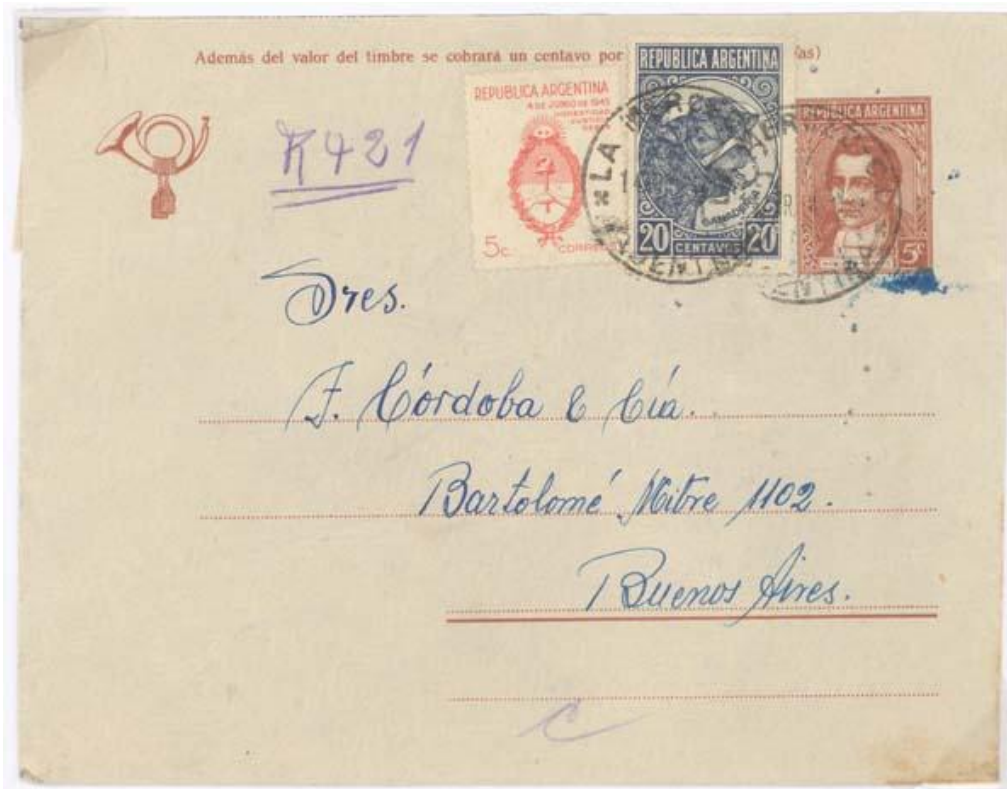 Además del valor del timbre se cobrará un centavo por
as)
REPUBLICA ARGENTINA
4 DE JUNIO DE 1943
HONESTIDAD
JUSTICIA
DEBER
5c. CORREOS
REPUBLICA ARGENTINA
GANADERIA
20 CENTAVOS 20
REPUBLICA ARGENTINA
5c
LA
R421
Dres.
F. Córdoba & Cía.
Bartolomé Mitre 1102.
Buenos Aires.
C